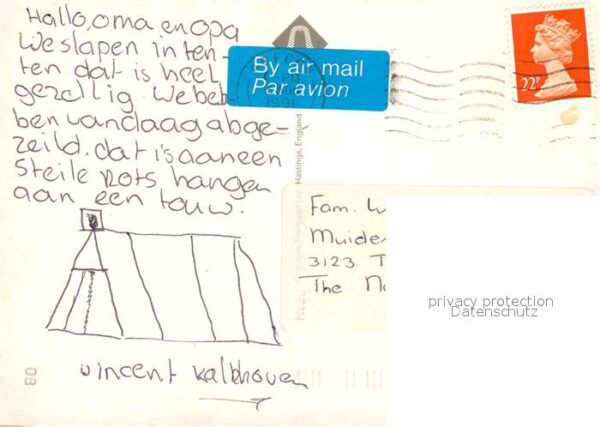 Hallo, oma en opa
We slapen in ten-
ten dat is heel
gezellig. We heb-
ben vandaag abge-
zeild. dat is aan een
steile rots hangen
aan een touw.
vincent Kalkhoven
By air mail
Par avion
1991
22P
Hastings, England
Fam.
Muider
3123 T
The
privacy protection
Datenschutz
08